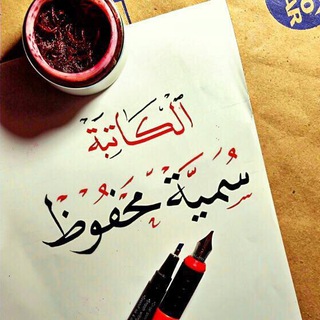 الْكَاتِبَة
سُمَيَّة مَحْفُوظْ